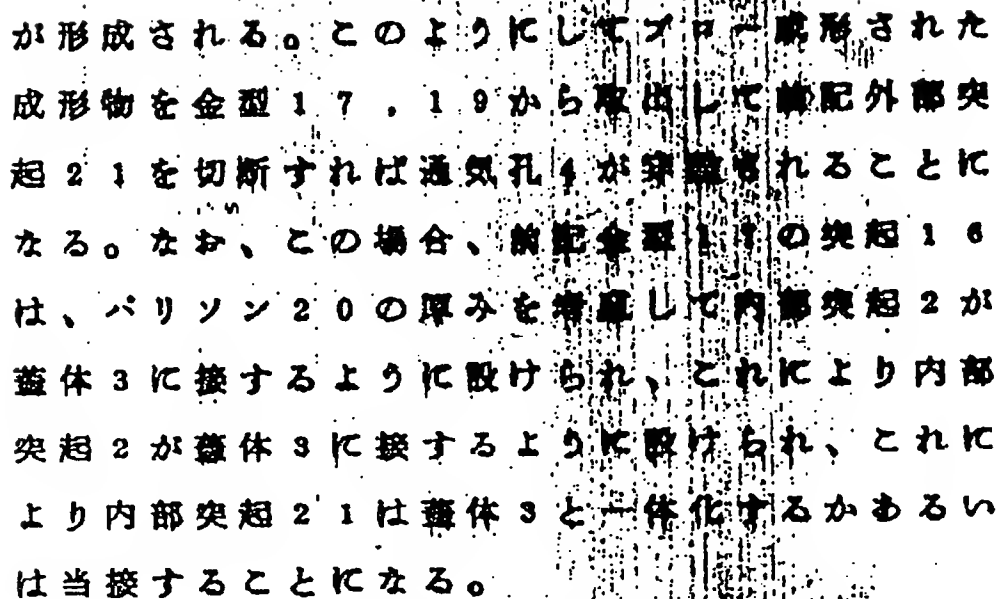 が形成される。このようにしてブロー成形された
成形物を金型17,19から取出して前記外部突
起21を切断すれば通気孔4が穿設されることに
なる。なお、この場合、前記金型17の突起16
は、パリソン20の厚みを考慮して内部突起2が
蓋体3に接するように設けられ、これにより内部
突起2が蓋体3に接するように設けられ、これに
より内部突起21は蓋体3と一体化するかあるい
は当接することになる。